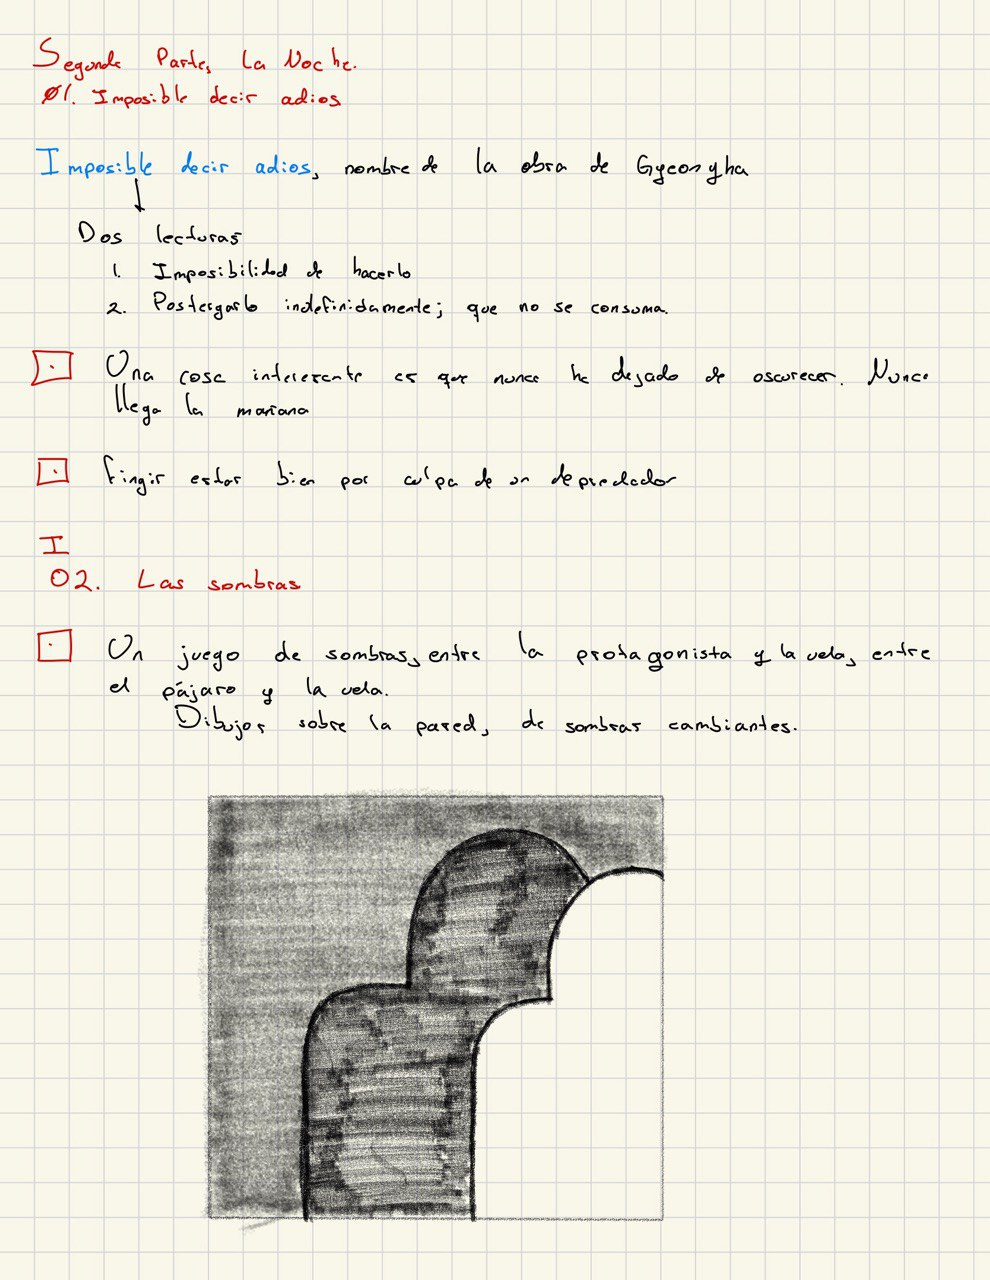 Segunda Parte, La Noche.
01. Imposible decir adios
Imposible decir adios, nombre de la obra de Gyeongha
Dos lecturas
1. Imposibilidad de hacerlo
2. Postergarlo indefinidamente; que no se consuma.
Una cosa interesante es que nunca ha dejado de oscurecer. Nunca
llega la mañana
Fingir estar bien por culpa de un depredador
I
02. Las sombras
Un juego de sombras, entre la protagonista y la vela, entre
el pájaro y la vela.
Dibujos sobre la pared, de sombras cambiantes.